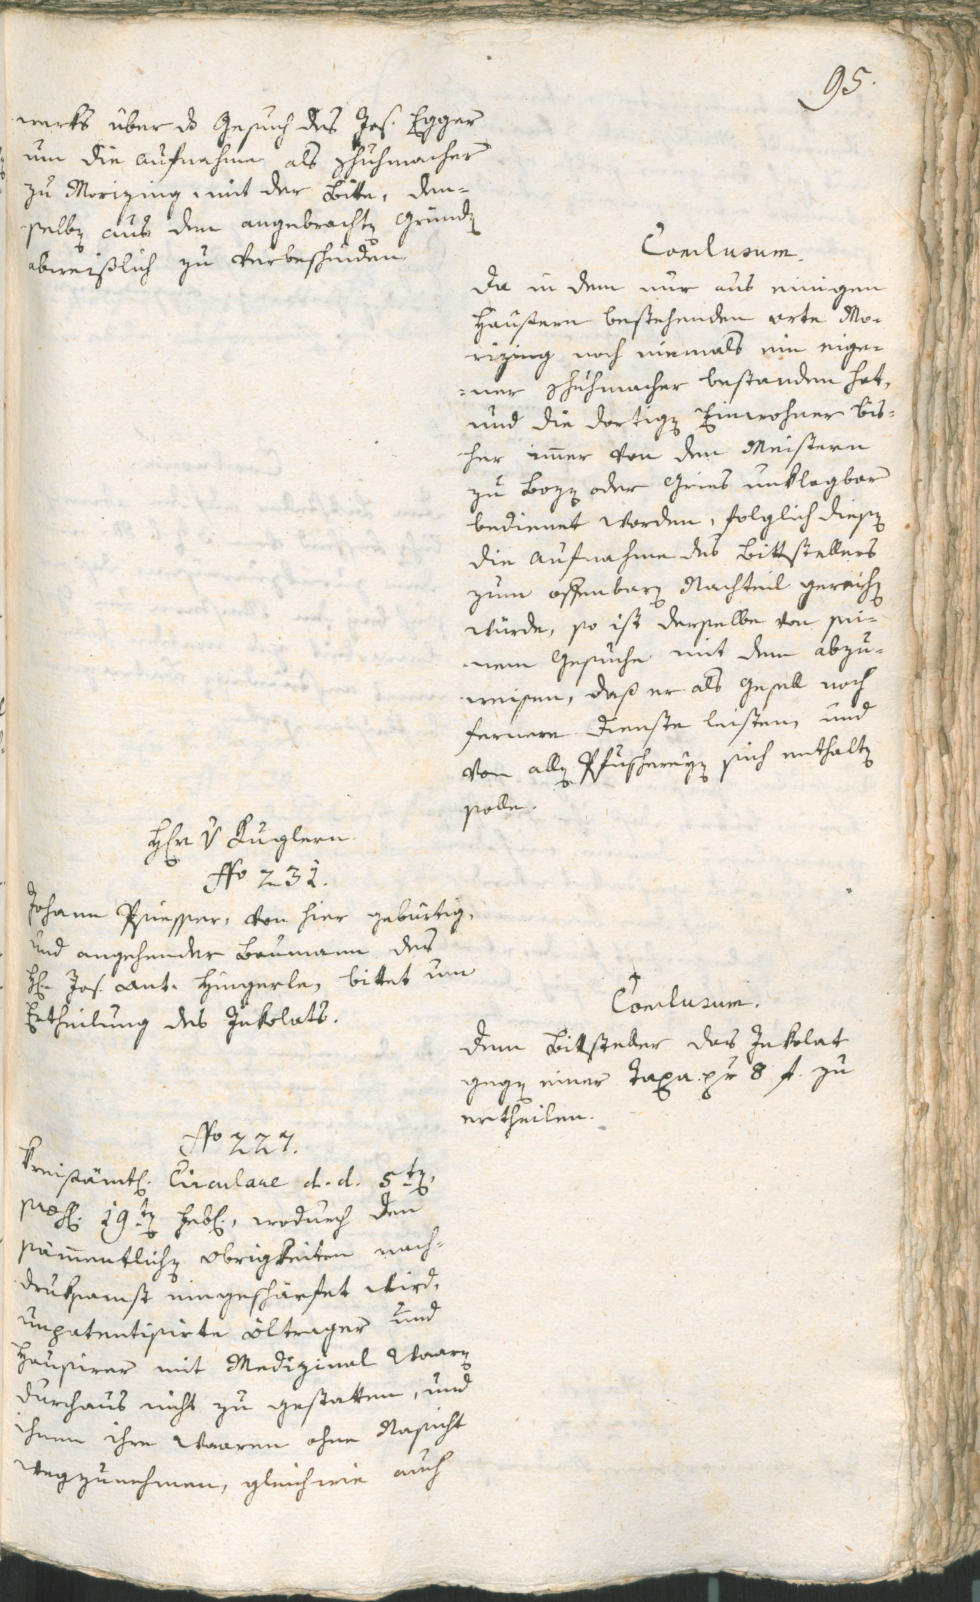 95.
werks über das Gesuch des Jos. Egger
um die Aufnahme als Schuhmacher
zu Morizing mit der Bitte, den-
selben aus den angebrachten Gründen
abweißlich zu verbescheiden.
Conclusum.
Da in dem nur aus einigen
Häusern bestehenden Orte Mo-
rizing noch niemals ein eige-
ner Schuhmacher bestanden hat,
und die dortigen Einwohner bis-
her immer von den Meistern
zu Bozen oder Gries unklagbar
bedienet worden, folglich diesen
die Aufnahme des Bittstellers
zum offenbaren Nachteil gereichen
würde, so ist derselbe von sei-
nem Gesuche mit dem abzu-
weisen, daß er als Gesell noch
fernere Dienste leisten, und
von allen Pfuschereyen sich enthalten
solle.
Herr v Kuglern
No 231.
Johann Prieffer, von hier gebürtig,
und angehender Baumann des
Hr. Jos. Ant. Hingerle, bittet um
Ertheilung des Inkolats.
Conclusum.
Dem Bittsteller das Inkolat
gegen einer Taxa pr 8 f. zu
ertheilen.
No 227.
Kreisämtl. Circulare d. d. 5ten,
praes. 19ten , wodurch den
sämmentlichen Obrigkeiten nach-
druksamst eingeschärfet wird,
unpatentisirte Ölträger und
Hausirer mit Medizinal Waaren
durchaus nicht zu gestatten, und
ihnen ihre Waaren ohne Nachsicht
wegzunehmen, gleichwie auch